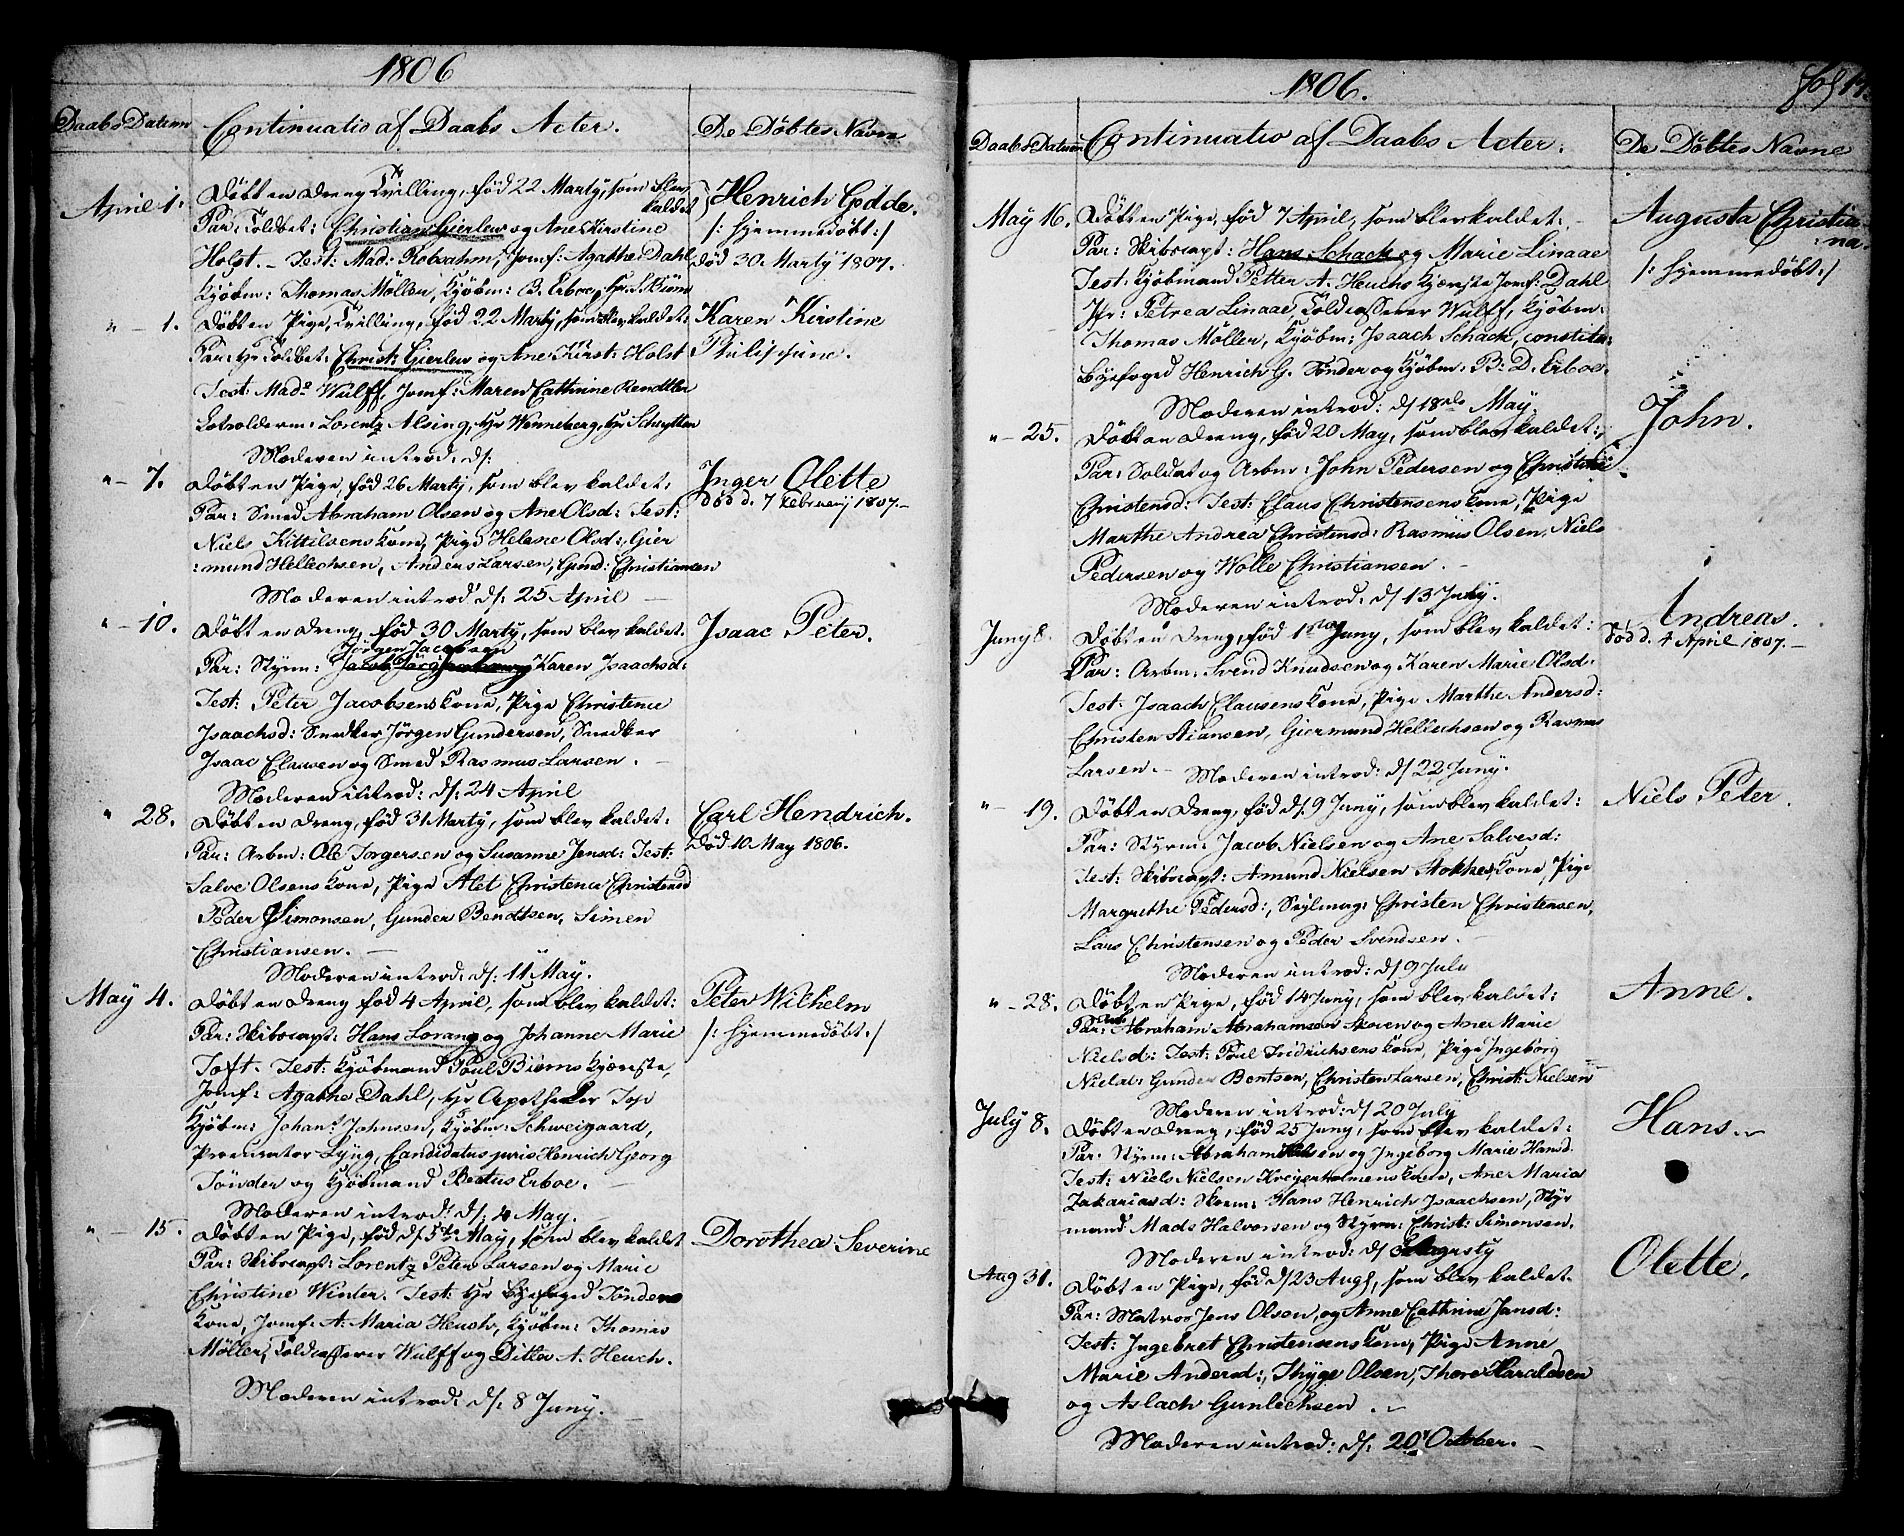 1806
Daabs Datum
Continuatio af Daabs Acter.
De Døbtes Navne
April 1.
Døbt en Dreng Tvilling, fød 22 Marty, som blev kaldet
Henrich Gødde.
Par: Toldbet: Christian Gierlew og Ane Kirstine
/: hjemmedøbt :/
Holst. - Test: Mad: Robrahm, Jomf: Agathe Dahl
død 30 Marty 1807.
Kjøbm: Thomas Møller, Kjøbm: B. Erboe, Hr. S. Kiønig
" - 1.
Døbt en Pige, Tvilling, fød 22 Marty, som blev kaldet:
Karen Kirstine
Par: Hr Toldbet: Christ: Gierlew og Ane Kirst: Holst
Philippine.
Test: Mad: Wulff, Jomf: Maren Cathrine Rendtler
Lotsolderm: Lorentz Alsing, Hr Wenneberg, Hr Scheytten
Moderen introd: d/:
" - 7.
Døbt en Pige, fød 26 Marty, som blev kaldet:
Inger Olette
død d. 7 Februarij 1807. -
Par: Smed Abraham Olsen og Ane Olsd: Test:
Niels Kittilsens Kone, Pige Helene Olsd:, Gier
:mund Hellechsen, Anders Larsen, Gund: Christiansen
Moderen introd d/: 25 April
" - 10.
Døbt en Dreng, fød 30 Marty, som blev kaldet.
Isaac Peter.
Jørgen Jacobsen
Par: Styrm: Karen Isaachsd:
Test: Peter Jacobsens Kone, Pige Christence
Isaachsd: Snedker Jörgen Gundersen, Snedker
Isaac Clausen og Smed Rasmus Larsen. -
Moderen introd: d/: 24 April
" 28.
Døbt en Dreng, fød 31 Marty, som blev kaldet:
Carl Hendrich.
død 10 May 1806.
Par: Arbm: Ole Torgersen og Susanne Jensd: Test:
Salve Olsens Kone, Pige Alet Christence Christensd
Peder Simonsen, Gunder Bendtsen, Simen
Christiansen. -
Moderen introd: d/: 11 May.
May 4.
Døbt en Dreng fød 4 April, som blev kaldet:
Peter Wilhelm
Par: Skibscapt: Hans Lorang og Johanne Marie
/: hjemmedøbt :/
Toft. Test: Kjøbmand Poul Biørns Kjæreste,
Jomf: Agathe Dahl, Hr Apotheker Top
Kjøbm: Johan: Johnsen, Kjøbm: Schweigaard,
Procurator Lyng, Candidatus juris Henrich Georg
Tönder og Kjøbmand Beatus Erboe. -
Moderen introd: d/: 4 May.
" - 15.
Døbt en Pige, fød d/ 5te May, som blev kaldet
Dorothea Severine
Par: Skibscapt: Lorentz Peter Larsen og Marie
Christine Winter. Test: Hr Byefoged Tönders
Kone, Jomf: A. Maria Heuch, Kjøbm: Thomas
Møller, Toldcasserer Wulff og Ditlev A. Heuch.
Moderen introd: d/: 8 Juny.
1806.
fol 17
Daabs Datum
Continuatio af Daabs Acter.
De Døbtes Navne
May 16.
Døbt en Pige, fød 7 April, som blev kaldet:
Augusta Christia-
:na.
Par: Skibscapt: Hans Schack og Marie Linaae
/: hjemmedøbt :/
Test: Kjøbmand Petter A. Heuchs Kjæreste Jomf: Dahl
Jfr: Petrea Linaae, Toldcasserer Wulff, Kjøbm:
Thomas Møller, Kjøbm: Isaach Schack, constitu:
Byefoged Henrich G. Tønder og Kjøbm: B: D. Erboe.
Moderen introd: d/ 18de May
" - 25.
Døbt en Dreng, fød 20 May, som blev kaldet:
John.
Par: Soldat og Arbm: John Pedersen og Christine
Christensd: Test: Claus Christensens Kone, Pige
Marthe Andrea Christensd: Rasmus Olsen, Niels
Pedersen og Wolle Christiansen. -
Moderen introd: d/ 13 July.
Juny 8.
Døbt en Dreng, fød 1ste Juny, som blev kaldet:
Andreas.
død d. 4 April 1807. -
Par: Arbm: Svend Knudsen og Karen Marie Olsd:
Test: Isaach Clausens Kone, Pige Marthe Andersd:
Christen Stiansen, Giermund Hellechsen og Rasmus
Larsen. - Moderen introd: d/ 22 Juny.
" - 19.
Døbt en Dreng, fød d/ 9 Juny, som blev kaldet:
Niels Peter.
Par: Styrm: Jacob Nielsen og Ane Salvesd:
Test: Skibscapt: Amund Nielsen Stokkes Kone, Pige
Margrethe Pedersd:, Seylmag: Christen Christensen,
Lars Christensen og Peder Svendsen. -
Moderen introd: d/ 9 July
" - 28.
Døbt en Pige, fød 14 Juny, som blev kaldet:
Anne.
Par: Abraham Abrahamsen Skeien og Ane Marie
Nielsd: Test: Poul Fridrichsens Kone, Pige Ingeborg
Nielsd: Gunder Bentsen, Christen Larsen, Christ: Nielsen
Moderen introd: d/ 20 July
July 8.
Døbt en Dreng, fød 25 Juny, som blev kaldet:
Hans.
Par: Styrm: Abraham og Ingeborg Marie Hansd.
Test: Niels Nielsen Krøgerholmens Kone, Ane Maria
Zakariasd: Skom: Hans Henrich Isaachsen, Styr
mand Mads Halvorsen og Styrm: Christ: Simonsen.
Moderen introd: d/ Augusty
Aug 31.
Døbt en Pige, fød d/ 23 Aug/, som blev kaldet.
Olette.
Par: Matros Jens Olsen, og Anne Cathrine Jansd:
Test: Ingebret Christensens Kone, Pige Anne
Marie Andersd:, Thyge Olsen, Thore Haraldsen
og Aslach Gunlechsen.
Moderen introd: d/: 20 October. -